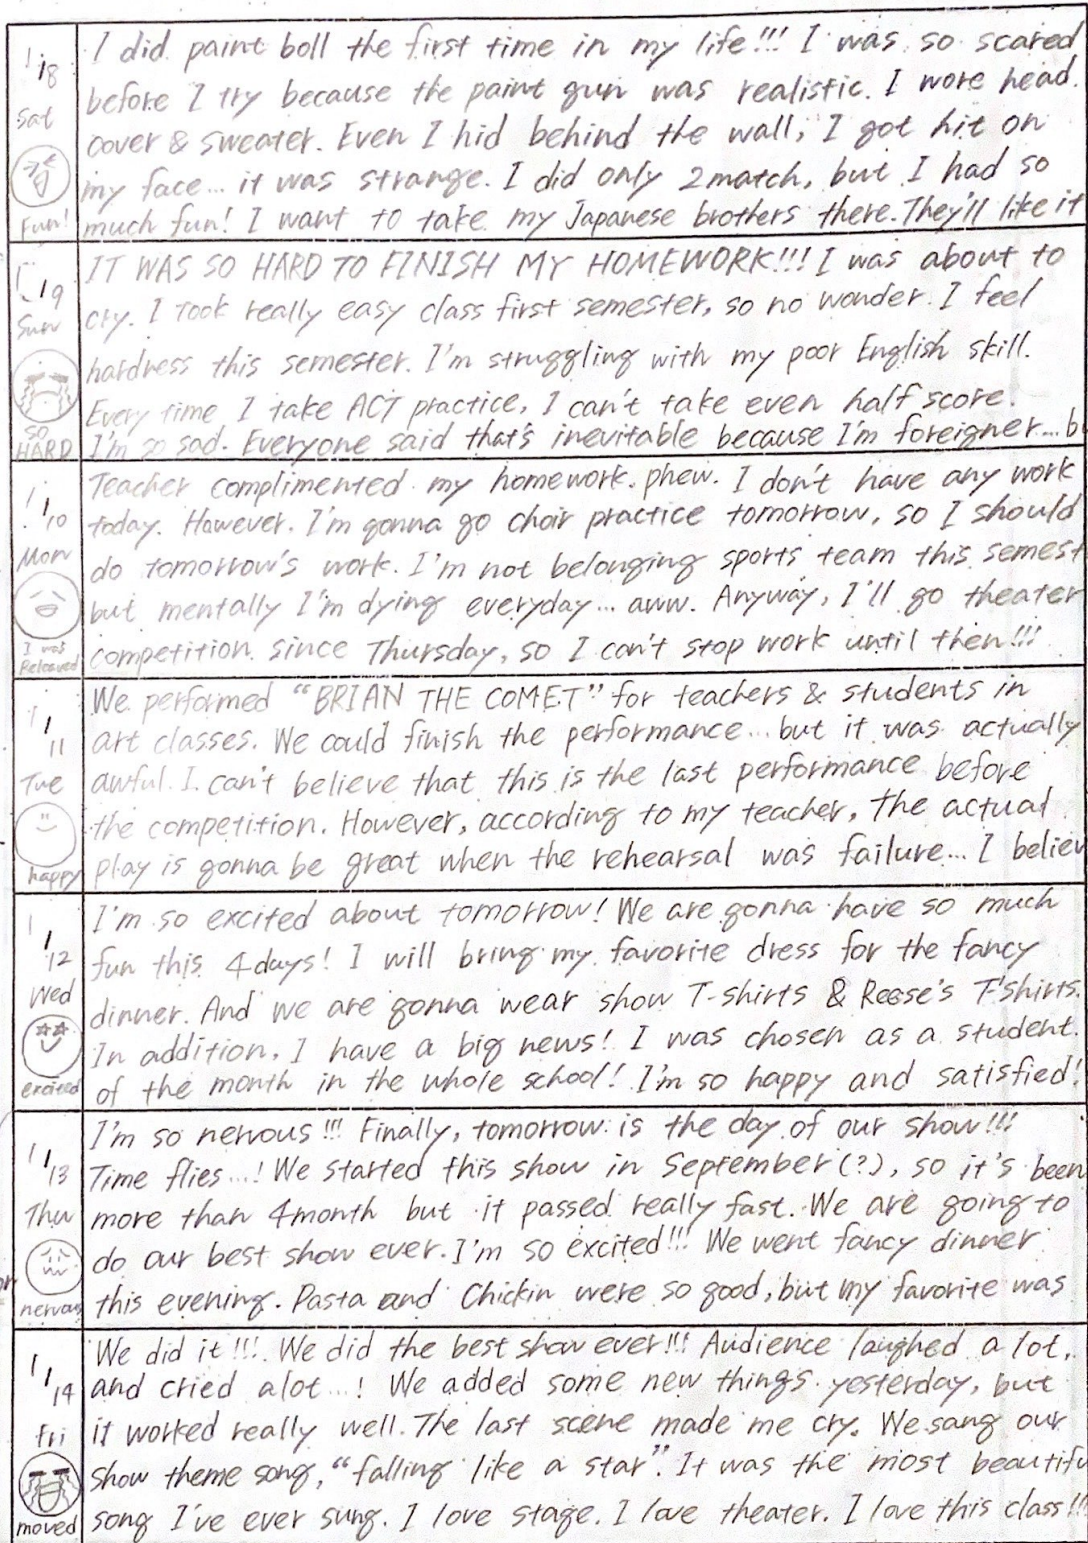 1/8
Sat
Fun!
I did paint boll the first time in my life!!! I was so scared
before I try because the paint gun was realistic. I wore head
cover & sweater. Even I hid behind the wall, I got hit on
my face... it was strange. I did only 2match, but I had so
much fun! I want to take my Japanese brothers there. They'll like it
1/9
Sun
SO HARD
IT WAS SO HARD TO FINISH MY HOMEWORK!!! I was about to
cry. I took really easy class first semester, so no wonder I feel
hardress this semester. I'm struggling with my poor English skill.
Every time I take ACT practice, I can't take even half score.
I'm so sad. Everyone said that's inevitable because I'm foreigner... bu
1/10
Mon
I was
Releaved
Teacher complimented my homework. phew. I don't have any work
today. However, I'm gonna go choir practice tomorrow, so I should
do tomorrow's work. I'm not belonging sports team this semest
but mentally I'm dying everyday... aww. Anyway, I'll go theater
competition since Thursday, so I can't stop work until then!!!
1/11
Tue
happy
We performed "BRIAN THE COMET" for teachers & students in
art classes. We could finish the performance... but it was actually
awful. I can't believe that this is the last performance before
the competition. However, according to my teacher, The actual
play is gonna be great when the rehearsal was failure... I believ
1/12
Wed
excited
I'm so excited about tomorrow! We are gonna have so much
fun this 4days! I will bring my favorite dress for the fancy
dinner. And we are gonna wear show T-shirts & Reese's T-shirts.
In addition, I have a big news! I was chosen as a student
of the month in the whole school! I'm so happy and satisfied!
1/13
Thu
nervous
I'm so nervous!!! Finally, tomorrow is the day of our show!!!
Time flies...! We started this show in September(?), so it's been
more than 4month but it passed really fast. We are going to
do our best show ever. I'm so excited!!! We went fancy dinner
this evening. Pasta and Chickin were so good, but my favorite was
1/14
Fri
moved
We did it!!! We did the best show ever!!! Audience laughed a lot,
and cried alot...! We added some new things yesterday, but
it worked really well. The last scene made me cry. We sang our
show theme song, "falling like a star". It was the most beautifu
song I've ever sung. I love stage. I love theater. I love this class!!!